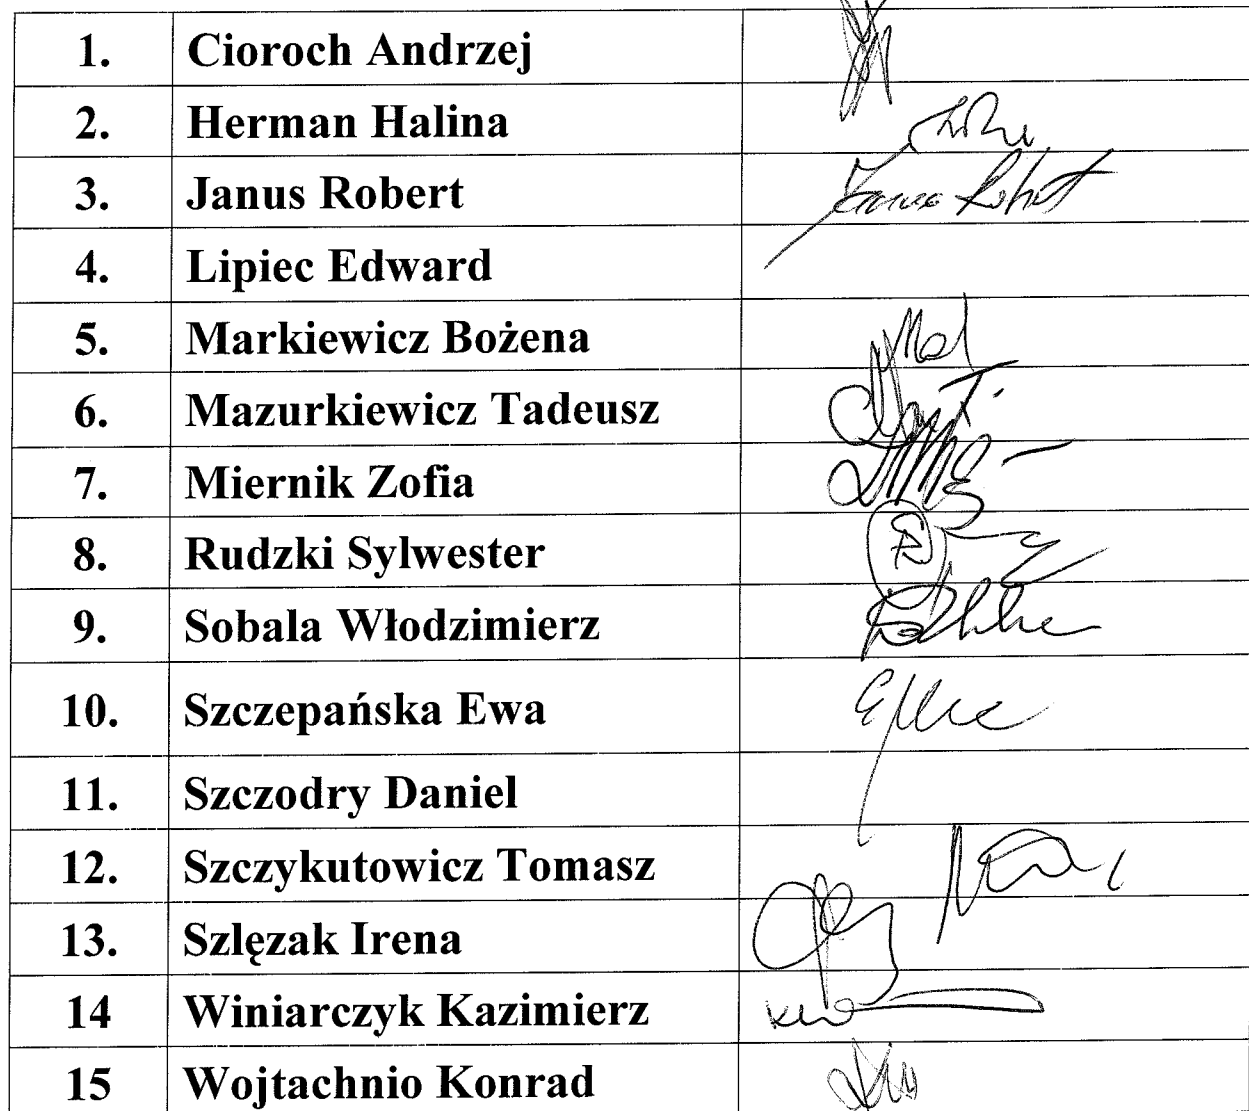 1. Cioroch Andrzej
2. Herman Halina
3. Janus Robert Janus Robert
4. Lipiec Edward
5. Markiewicz Bożena
6. Mazurkiewicz Tadeusz
7. Miernik Zofia
8. Rudzki Sylwester
9. Sobala Włodzimierz
10. Szczepańska Ewa
11. Szczodry Daniel
12. Szczykutowicz Tomasz
13. Szlęzak Irena
14 Winiarczyk Kazimierz
15 Wojtachnio Konrad